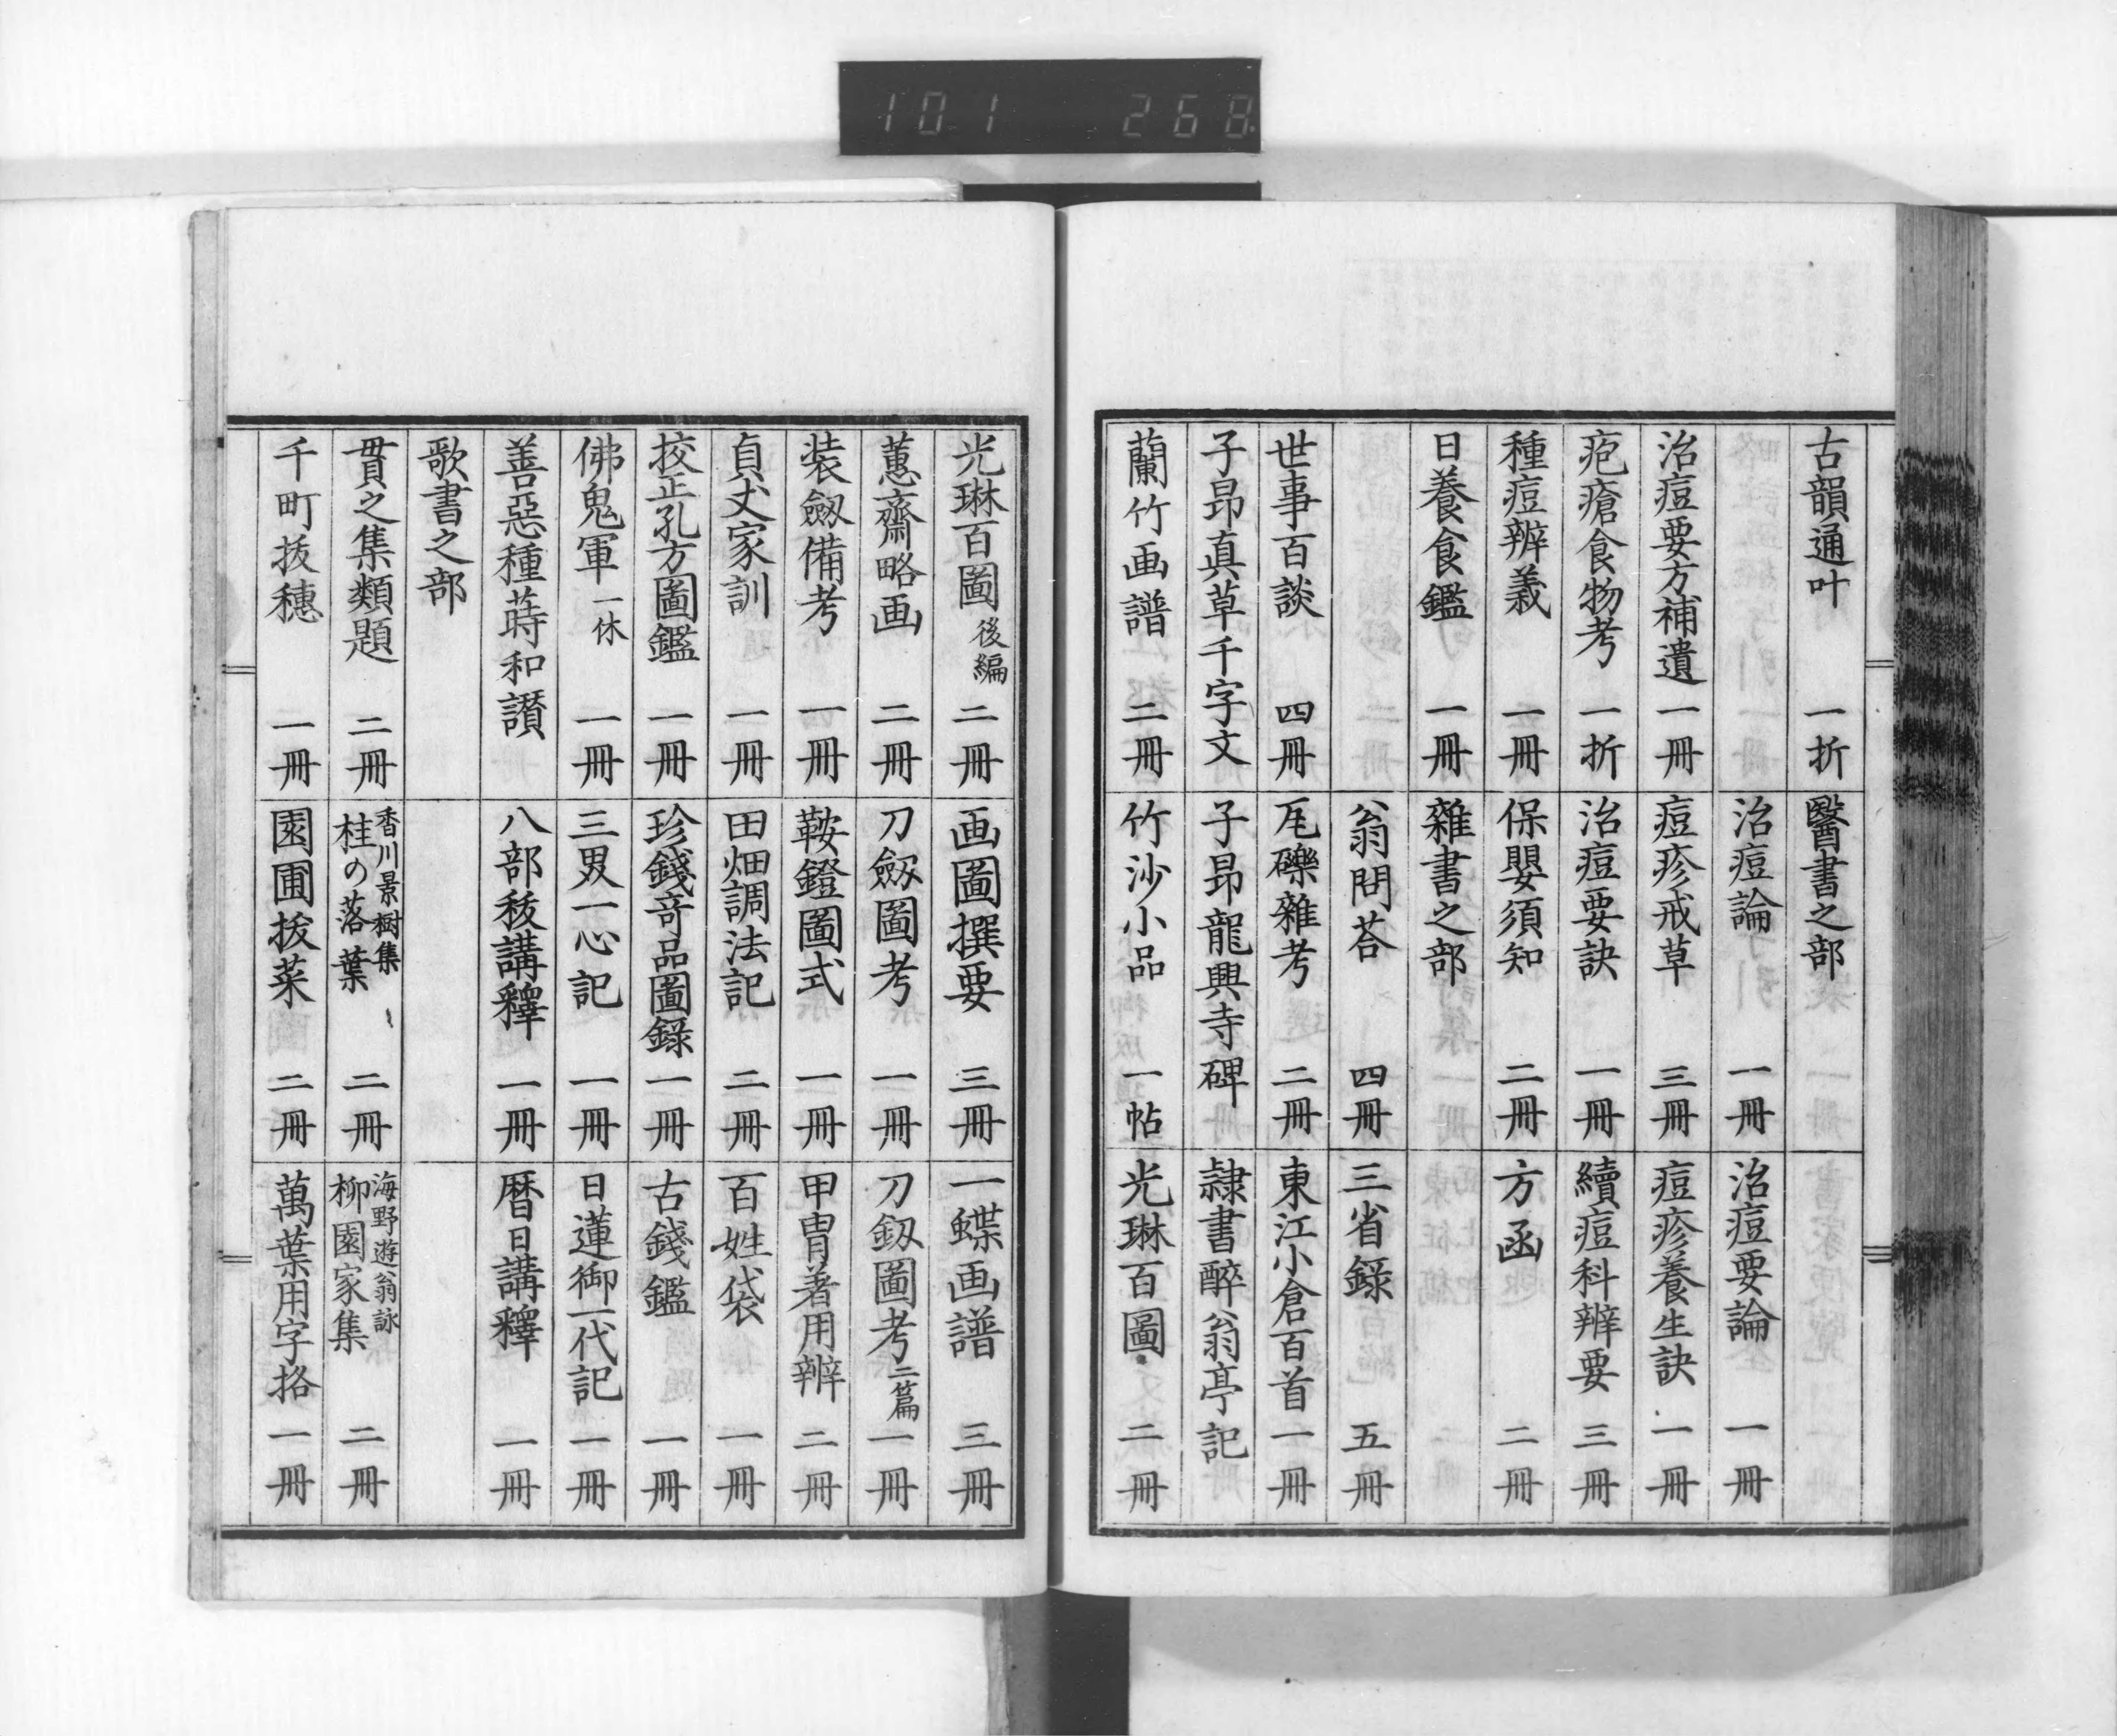 101 268
古韻通叶 一折
醫書之部
治痘論 一冊
治痘要論 一冊
治痘要方補遺 一冊
痘疹戒草 三冊
痘疹養生訣 一冊
疤瘡食物考 一折
治痘要訣 一冊
續痘科辨要 三冊
種痘辨義 一冊
保嬰須知 二冊
方函 二冊
日養食鑑 一冊
雜書之部
翁問荅 四冊
三省録 五冊
世事百談 四冊
瓦礫雜考 二冊
東江小倉百首 一冊
子昻真草千字文
子昻龍興寺碑
隷書醉翁亭記
蘭竹画譜 二冊
竹沙小品 一帖
光琳百圖 二冊
光琳百圖後編 二冊
画圖撰要 三冊
一蝶画譜 三冊
蕙齋略画 二冊
刀劔圖考 一冊
刀釼圖考二篇 一冊
装劔備考 一冊
鞍鐙圖式 一冊
甲冑著用辨 二冊
貞丈家訓 一冊
田畑調法記 二冊
百姓袋 一冊
挍正孔方圖鑑 一冊
珍錢竒品圖録 一冊
古錢鑑 一冊
佛鬼軍一休 一冊
三界一心記 一冊
日蓮御一代記 一冊
善惡種蒔和讃
八部秡講釋 一冊
暦日講釋 一冊
歌書之部
貫之集類題 二冊
香川景樹集
桂の落葉 二冊
海野遊翁詠
柳園家集 二冊
千町抜穗 一冊
園圃抜菜 二冊
萬葉用字格 一冊